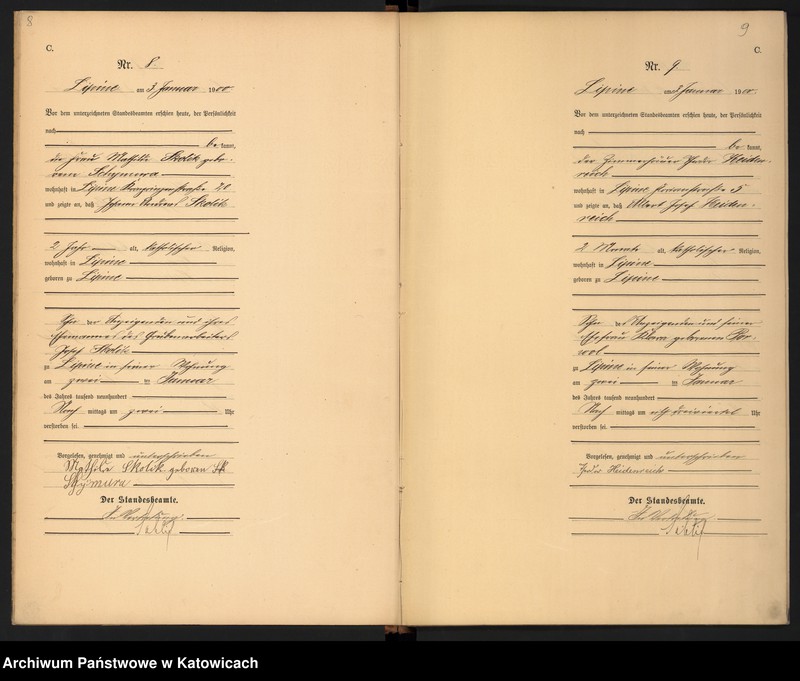 8
C.
Nr. 8.
Lipine am 3 Januar 1900
Vor dem unterzeichneten Standesbeamten erschien heute, der Persönlichkeit
nach
be kannt,
die Frau Mathilde Skolik gebo-
rene Schymura
wohnhaft in Lipine 20
und zeigte an, daß Skolik
2 Jahr alt, katholischer Religion,
wohnhaft in Lipine
geboren zu Lipine
Sohn der Anzeigenden und ihres
Ehemannes des Grubenarbeiters
Josef Skolik
zu Lipine in seiner Wohnung
am zwei ten Januar
des Jahres tausend neunhundert
Nach mittags um zwei Uhr
verstorben sei.
Vorgelesen, genehmigt und unterschrieben
Mathilde Skolik geboren
Schymura
Der Standesbeamte.
In Vertretung
9
C.
Nr. 9
Lipine am 3 Januar 1900
Vor dem unterzeichneten Standesbeamten erschien heute, der Persönlichkeit
nach
be kannt,
der Heiden-
reich
wohnhaft in Lipine 5
und zeigte an, daß Albert Josef Heiden-
reich
2 Monate alt, katholischer Religion,
wohnhaft in Lipine
geboren zu Lipine
Sohn des Anzeigenden und seiner
Ehefrau Klara geborenen
zu Lipine in seiner Wohnung
am zwei ten Januar
des Jahres tausend neunhundert
Nach mittags um dreiviertel Uhr
verstorben sei.
Vorgelesen, genehmigt und unterschrieben
Heidenreich
Der Standesbeamte.
In Vertretung
Archiwum Państwowe w Katowicach